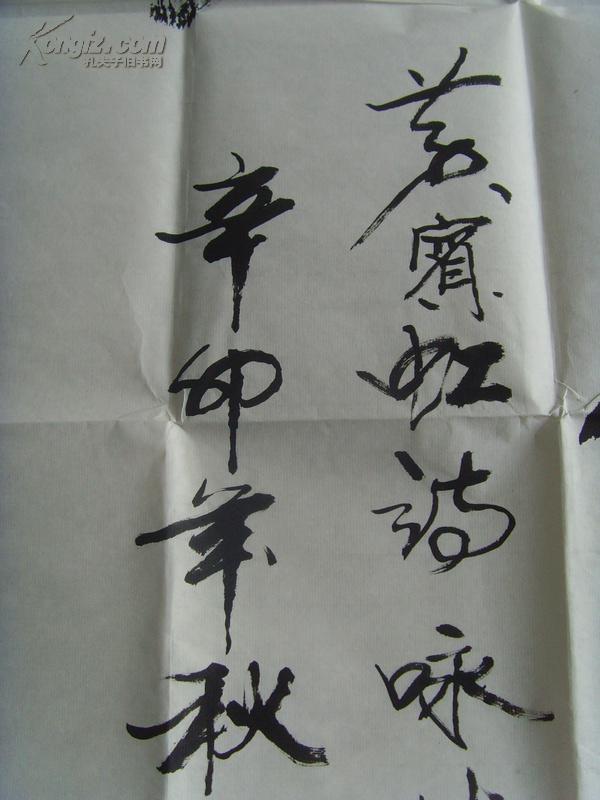 黄宾虹诗咏
辛卯年秋
Kongfz.com
孔夫子旧书网